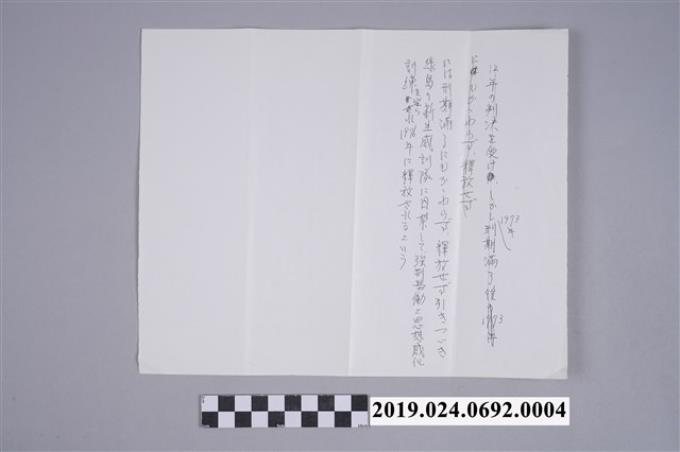 12年の判決を受け、しかし刑期満了後も1973年
1973年
にもかかわらず、釈放せず
には刑期満了にもかかわらず、釋放せず引きつづき
緑島の新生感訓隊に囚禁して強制労働と思想感化
訓練 1976年に釋放されるという
2019.024.0692.0004